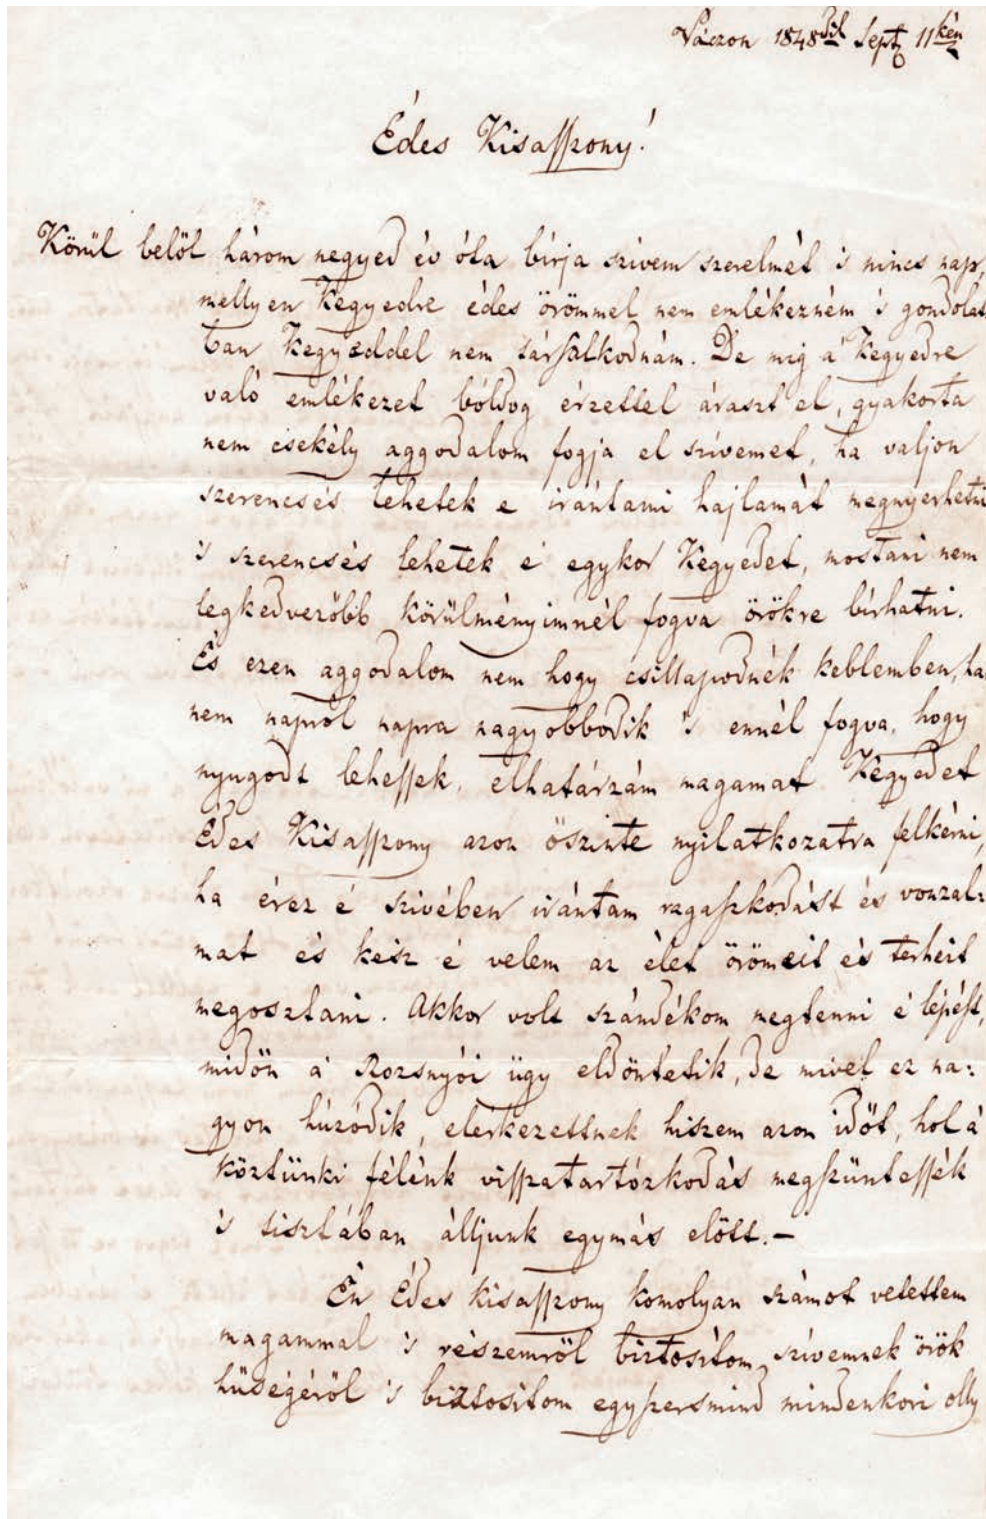 Váczon 1848dik Sept 11kén
Édes Kisasszony!
Körül belöl három negyed év óta bírja szivem szerelmét 's nincs nap,
mellyen Kegyedre édes örömmel nem emlékezném 's gondolat
ban Kegyeddel nem társalkodnám. De mig a' Kegyedre
való emlékezet bóldog érzettel áraszt el, gyakorta
nem csekély aggodalom fogja el szívemet, ha valjon
szerencsés lehetek e irántami hajlamát megnyerhetni
's szerencsés lehetek é egykor Kegyedet, mostani nem
legkedvezőbb körülményimnél fogva örökre bírhatni.
És ezen aggodalom nem hogy csillapodnék keblemben, ha
nem napról napra nagyobbodik 's ennél fogva, hogy
nyugodt lehessek, elhatárzám magamat Kegyedet
Édes Kisasszony azon öszinte nyilatkozatra felkérni,
ha érez é szivében irántam ragaszkodást és vonzal:
mat és kész é velem az élet örömeit és terheit
megosztani. Akkor volt szándékom megtenni é lépést,
midön a' Rozsnyói ügy eldöntetik, de mivel ez na:
gyon húzódik, elerkezettnek hiszem azon idöt, hol a'
köztünki félénk visszatartózkodás megszüntessék
's tisztában álljunk egymás elött.–
Én Édes kisasszony komolyan számot vetettem
magammal 's részemröl biztosítom szívemnek örök
hüségéröl 's biztosítom egyszersmind mindenkori olly